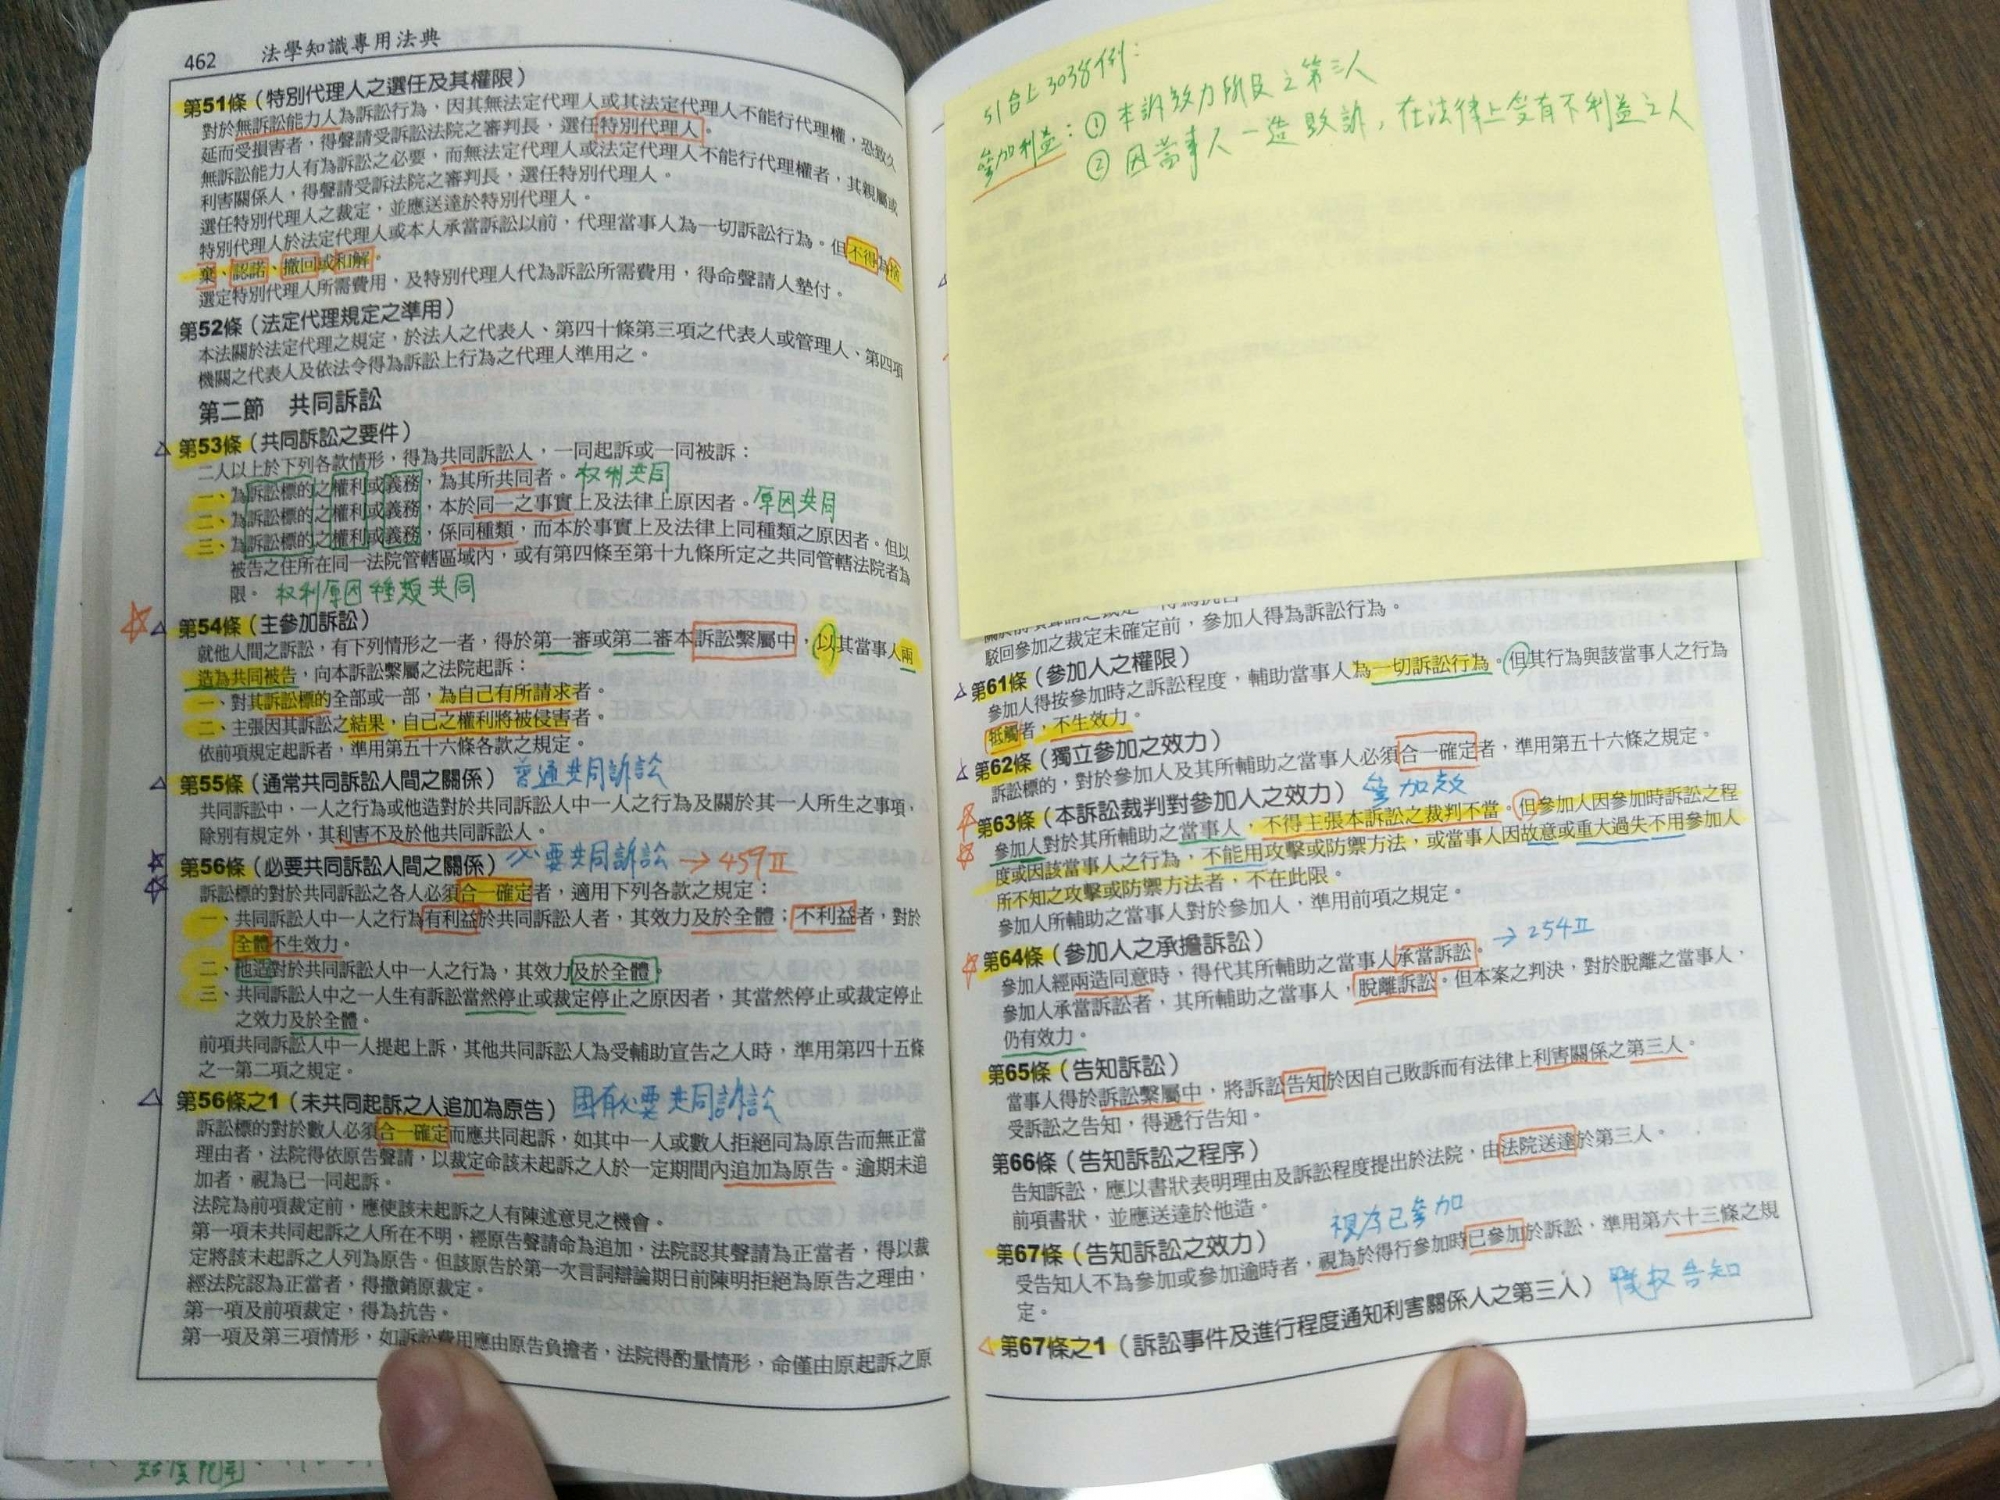 462 法學知識專用法典
第51條（特別代理人之選任及其權限）
對於無訴訟能力人為訴訟行為，因其無法定代理人或其法定代理人不能行代理權，恐致久
延而受損害者，得聲請受訴訟法院之審判長，選任特別代理人。
無訴訟能力人有為訴訟之必要，而無法定代理人或法定代理人不能行代理權者，其親屬或
利害關係人，得聲請受訴法院之審判長，選任特別代理人。
選任特別代理人之裁定，並應送達於特別代理人。
特別代理人於法定代理人或本人承當訴訟以前，代理當事人為一切訴訟行為。但不得為捨
棄、認諾、撤回或和解。
選定特別代理人所需費用，及特別代理人代為訴訟所需費用，得命聲請人墊付。
第52條（法定代理規定之準用）
本法關於法定代理之規定，於法人之代表人、第四十條第三項之代表人或管理人、第四項
機關之代表人及依法令得為訴訟上行為之代理人準用之。
第二節 共同訴訟
第53條（共同訴訟之要件）
二人以上於下列各款情形，得為共同訴訟人，一同起訴或一同被訴：
一、為訴訟標的之權利或義務，為其所共同者。 权利共同
二、為訴訟標的之權利或義務，本於同一之事實上及法律上原因者。 原因共同
三、為訴訟標的之權利或義務，係同種類，而本於事實上及法律上同種類之原因者。但以
被告之住所在同一法院管轄區域內，或有第四條至第十九條所定之共同管轄法院者為
限。 权利原因種類共同
第54條（主參加訴訟）
就他人間之訴訟，有下列情形之一者，得於第一審或第二審本訴訟繫屬中，以其當事人兩
造為共同被告，向本訴訟繫屬之法院起訴：
一、對其訴訟標的全部或一部，為自己有所請求者。
二、主張因其訴訟之結果，自己之權利將被侵害者。
依前項規定起訴者，準用第五十六條各款之規定。
第55條（通常共同訴訟人間之關係） 普通共同訴訟
共同訴訟中，一人之行為或他造對於共同訴訟人中一人之行為及關於其一人所生之事項，
除別有規定外，其利害不及於他共同訴訟人。
第56條（必要共同訴訟人間之關係） 必要共同訴訟 →459Ⅱ
訴訟標的對於共同訴訟之各人必須合一確定者，適用下列各款之規定：
一、共同訴訟人中一人之行為有利益於共同訴訟人者，其效力及於全體；不利益者，對於
全體不生效力。
二、他造對於共同訴訟人中一人之行為，其效力及於全體。
三、共同訴訟人中之一人生有訴訟當然停止或裁定停止之原因者，其當然停止或裁定停止
之效力及於全體。
前項共同訴訟人中一人提起上訴，其他共同訴訟人為受輔助宣告之人時，準用第四十五條
之一第二項之規定。
第56條之1（未共同起訴之人追加為原告） 固有必要共同訴訟
訴訟標的對於數人必須合一確定而應共同起訴，如其中一人或數人拒絕同為原告而無正當
理由者，法院得依原告聲請，以裁定命該未起訴之人於一定期間內追加為原告。逾期未追
加者，視為已一同起訴。
法院為前項裁定前，應使該未起訴之人有陳述意見之機會。
第一項未共同起訴之人所在不明，經原告聲請命為追加，法院認其聲請為正當者，得以裁
定將該未起訴之人列為原告。但該原告於第一次言詞辯論期日前陳明拒絕為原告之理由，
經法院認為正當者，得撤銷原裁定。
第一項及前項裁定，得為抗告。
第一項及第三項情形，如訴訟費用應由原告負擔者，法院得酌量情形，命僅由原起訴之原
51台上3038例：
參加利益：①本訴效力所及之第三人
②因當事人一造敗訴，在法律上受有不利益之人
駁回參加之裁定未確定前，參加人得為訴訟行為。
第61條（參加人之權限）
參加人得按參加時之訴訟程度，輔助當事人為一切訴訟行為。但其行為與該當事人之行為
牴觸者，不生效力。
第62條（獨立參加之效力）
訴訟標的，對於參加人及其所輔助之當事人必須合一確定者，準用第五十六條之規定。
第63條（本訴訟裁判對參加人之效力） 參加效
參加人對於其所輔助之當事人，不得主張本訴訟之裁判不當。但參加人因參加時訴訟之程
度或因該當事人之行為，不能用攻擊或防禦方法，或當事人因故意或重大過失不用參加人
所不知之攻擊或防禦方法者，不在此限。
參加人所輔助之當事人對於參加人，準用前項之規定。
第64條（參加人之承擔訴訟） →254Ⅱ
參加人經兩造同意時，得代其所輔助之當事人承當訴訟。
參加人承當訴訟者，其所輔助之當事人，脫離訴訟。但本案之判決，對於脫離之當事人，
仍有效力。
第65條（告知訴訟）
當事人得於訴訟繫屬中，將訴訟告知於因自己敗訴而有法律上利害關係之第三人。
受訴訟之告知，得遞行告知。
第66條（告知訴訟之程序）
告知訴訟，應以書狀表明理由及訴訟程度提出於法院，由法院送達於第三人。
前項書狀，並應送達於他造。
視為已參加
第67條（告知訴訟之效力）
受告知人不為參加或參加逾時者，視為於得行參加時已參加於訴訟，準用第六十三條之規
定。
第67條之1（訴訟事件及進行程度通知利害關係人之第三人） 職权告知